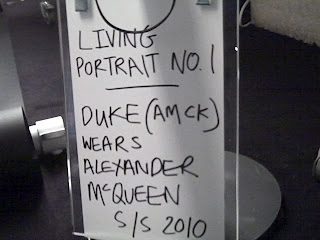 LIVING
PORTRAIT NO. 1
DUKE (AMCK)
WEARS
ALEXANDER
McQUEEN
S/S 2010